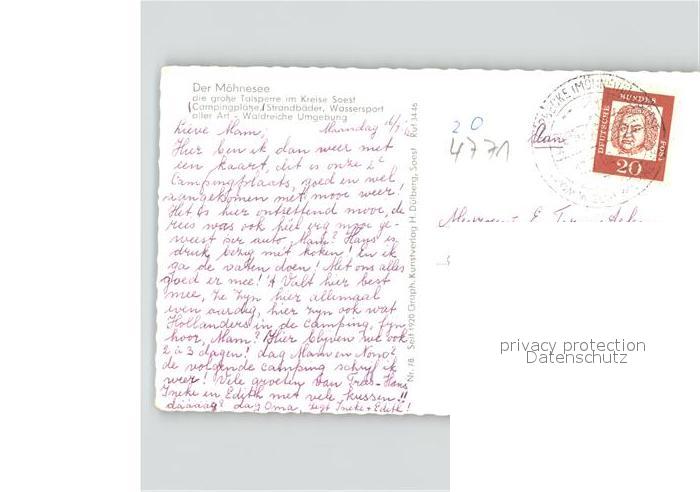 Der Möhnesee
die große Talsperre im Kreise Soest
(Campingplätze/Strandbäder, Wassersport
aller Art - Waldreiche Umgebung
Lieve Mam, Maandag
Hier ben ik dan weer met
een kaart, dit is onze 2e
Campingplaats, goed en wel
aangekomen met mooi weer!
Het is hier ontzettend mooi, de
reis was ook heel erg mooi ge-
weest per auto, Mam? Hans is
druk bezig met koken! En ik
ga de vaten doen! Met ons alles
goed er mee! 't Valt hier best
mee, ze zijn hier allemaal
even aardig, hier zijn ook wat
Hollanders in de camping, fijn
hoor, Mam? Hier blijven we ook
2 à 3 dagen! dag Mam en Nono?
de volgende camping schrijf ik
weer! Vele groeten van Hans
Ineke en Edith met vele kussen!!
dááááág? dag Oma, zegt Ineke + Edith!
Nr. 78 Seit 1920 Graph. Kunstverlag H. Dülberg, Soest Ruf 3446
20
4771
Aan
DEUTSCHE BUNDESPOST
20
Mevrouw E.
privacy protection
Datenschutz